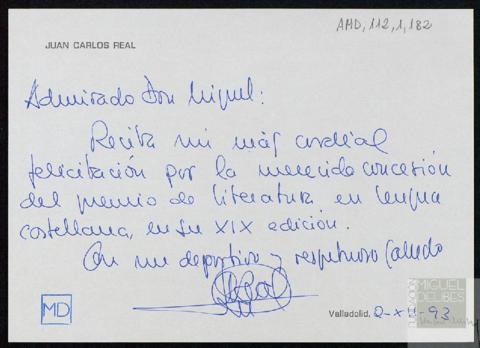 AMD, 112, 1, 182
JUAN CARLOS REAL
Admirado Don Miguel:
Reciba mi más cordial
felicitación por la merecida concesión
del premio de literatura en lengua
castellana, en su XIX edición.
Con un deportivo y respetuoso saludo
MD
Valladolid, 2-XII-93
MIGUEL
DELIBES